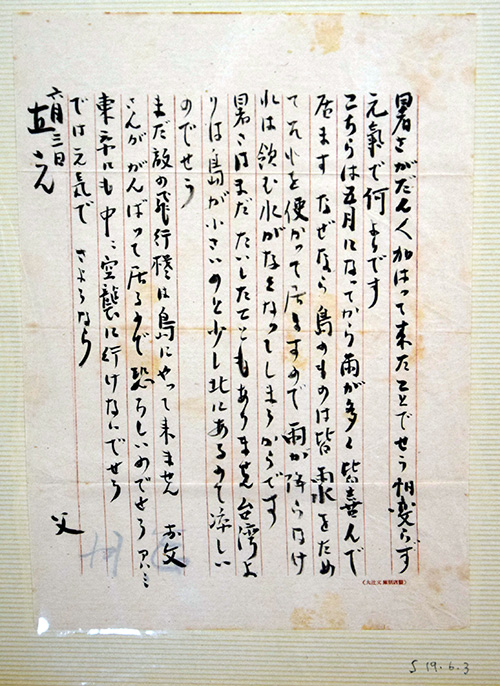 暑さがだん〱加はって来たことでせう 相変らず
元氣で何よりです
こちらは五月になってから雨が多く皆喜んで
居ます なぜなら島のものは皆雨水をため
てそれを使かって居ますので雨が降らなけ
れば飲む水がなくなってしまうからです
暑さはまだたいしたこともありません台湾よ
りは島が小さいのと少し北にあるので涼しい
のでせう
まだ敵の飛行機は島にやって来ません お父
さんががんばって居るので恐ろしいのでせう アハヽ
東京にも中々空襲に行けないでせう
では元気で さようなら
六月三日
父
さん
S 19.6.3